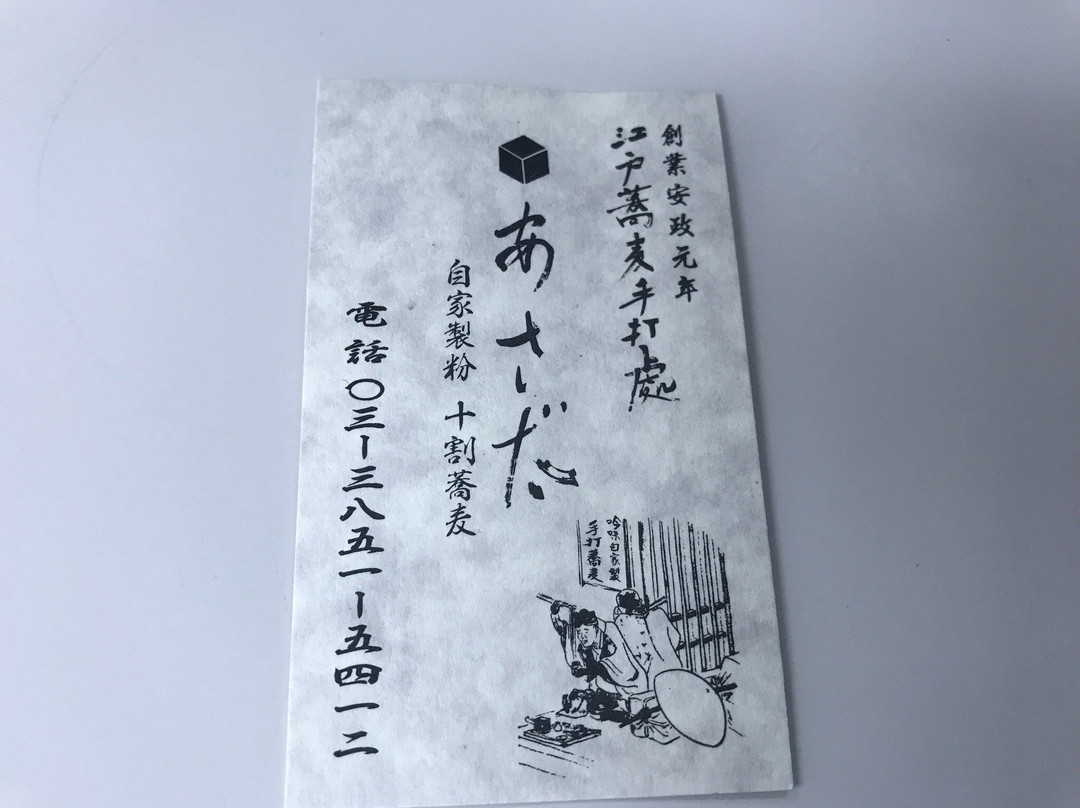 創業安政元年
江戸蕎麦手打處
あさだ
自家製粉 十割蕎麦
電話〇三ー三八五一ー五四一二
吟味自家製
手打蕎麦